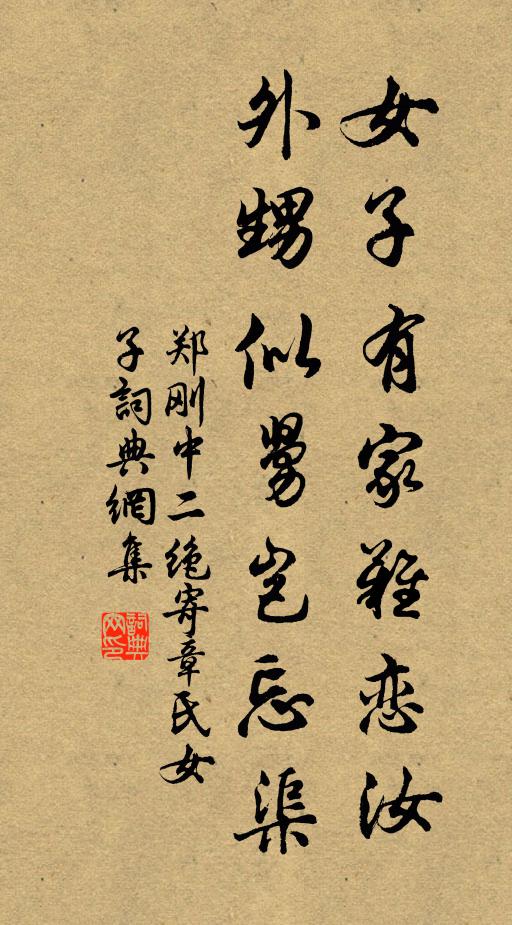 女子有家難恋汝
外甥似舅岂忘渠
郑刚中二绝寄章氏女
子詞典網集
詞典网印